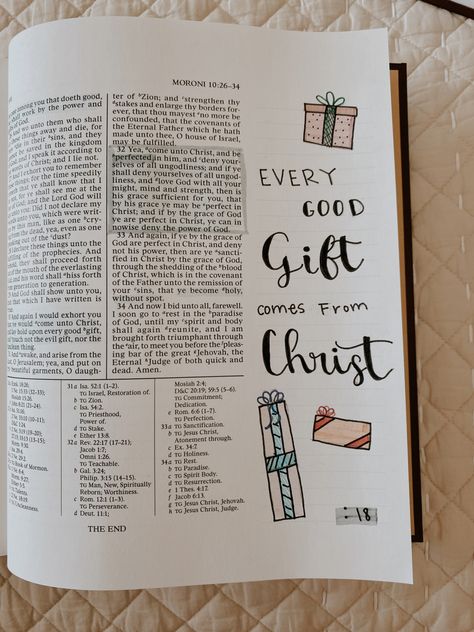 MORONI 10:26–34
among you that doeth good,
work by the power and
of God.
wo unto them who shall
things away and die, for
in their sins, and they
be saved in the kingdom
and I speak it according to
of Christ; and I lie not.
I exhort you to remember
for the time speedily
that ye shall know that I
for ye shall see me at the
God; and the Lord God will
Did I not declare my
unto you, which were writ-
this man, like as one cry-
the dead, yea, even as one
out of the dust?
these things unto the
of the prophecies. And
they shall proceed forth
the mouth of the everlasting
his word shall hiss forth
generation to generation.
And God shall show unto you,
that which I have written is
And again I would exhort you
would come unto Christ,
hold upon every good gift,
touch not the evil gift, nor the
thing.
And awake, and arise from the
O Jerusalem; yea, and put on
beautiful garments, O daugh-
ter of Zion; and strengthen thy
stakes and enlarge thy borders for-
ever, that thou mayest no more be
confounded, that the covenants of
the Eternal Father which he hath
made unto thee, O house of Israel,
may be fulfilled.
32 Yea, come unto Christ, and be
perfected in him, and deny your-
selves of all ungodliness; and if ye
shall deny yourselves of all ungod-
liness, and love God with all your
might, mind and strength, then is
his grace sufficient for you, that
by his grace ye may be perfect in
Christ; and if by the grace of God
ye are perfect in Christ, ye can in
nowise deny the power of God.
33 And again, if ye by the grace of
God are perfect in Christ, and deny
not his power, then are ye sancti-
fied in Christ by the grace of God,
through the shedding of the blood
of Christ, which is in the covenant
of the Father unto the remission of
your sins, that ye become holy,
without spot.
34 And now I bid unto all, farewell.
I soon go to rest in the paradise
of God, until my spirit and body
shall again reunite, and I am
brought forth triumphant through
the air, to meet you before the pleas-
ing bar of the great Jehovah, the
Eternal Judge of both quick and
dead. Amen.
31a Isa. 52:1 (1–2).
TG Israel, Restoration of.
b TG Zion.
c Isa. 54:2.
TG Priesthood,
Power of.
d TG Stake.
e Ether 13:8.
32a Rev. 22:17 (17–21);
Jacob 1:7;
Omni 1:26.
TG Teachable.
b Gal. 3:24;
Philip. 3:15 (14–15).
TG Man, New, Spiritually
Reborn; Worthiness.
c Rom. 12:1 (1–3).
TG Perseverance.
d Deut. 11:1;
Mosiah 2:4;
D&C 20:19; 59:5 (5–6).
TG Commitment;
Dedication.
e Rom. 6:6 (1–7).
TG Perfection.
33a TG Sanctification.
b TG Jesus Christ,
Atonement through.
c Ex. 34:7.
d TG Holiness.
34a TG Rest.
b TG Paradise.
c TG Spirit Body.
d TG Resurrection.
e 1 Thes. 4:17.
f Jacob 6:13.
g TG Jesus Christ, Jehovah.
h TG Jesus Christ, Judge.
THE END
EVERY
GOOD
Gift
comes From
Christ
:18